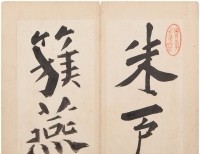 朱戶
簇燕